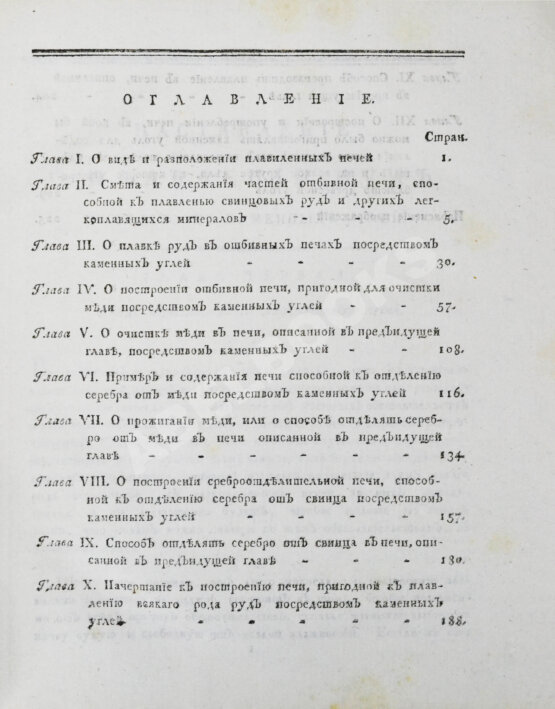 ОГЛАВЛЕНІЕ.
Стран.
Глава I. О видѣ и расположеніи плавиленныхъ печей 1.
Глава II. Смѣта и содержанія частей отбивной печи, спо-
собной къ плавленью свинцовыхъ рудъ и другихъ лег-
коплавящихся минераловъ - - - - 5.
Глава III. О плавкѣ рудъ въ отбивныхъ печахъ посредствомъ
каменныхъ углей - - - - - 30.
Глава IV. О построеніи отбивной печи, пригодной для очистки
мѣди посредствомъ каменныхъ углей - - - 57.
Глава V. О очисткѣ мѣди въ печи, описанной въ предъидущей
главѣ, посредствомъ каменныхъ углей - - - 108.
Глава VI. Примѣръ и содержанія печи способной къ отдѣленію
серебра отъ мѣди посредствомъ каменныхъ углей - 116.
Глава VII. О прожиганіи мѣди, или о способѣ отдѣлять сереб-
ро отъ мѣди въ печи описанной въ предъидущей
главѣ - - - - - - - 134.
Глава VIII. О построенія среброотдѣлительной печи, способ-
ной къ отдѣленію серебра отъ свинца посредствомъ
каменныхъ углей - - - - - 157.
Глава IX. Способъ отдѣлять серебро отъ свинца въ печи, опи-
санной въ предъидущей главѣ - - - - 180.
Глава X. Начертаніе къ построенію печи, пригодной къ плав-
ленію всякаго рода рудъ посредствомъ каменныхъ
углей - - - - - - 188.